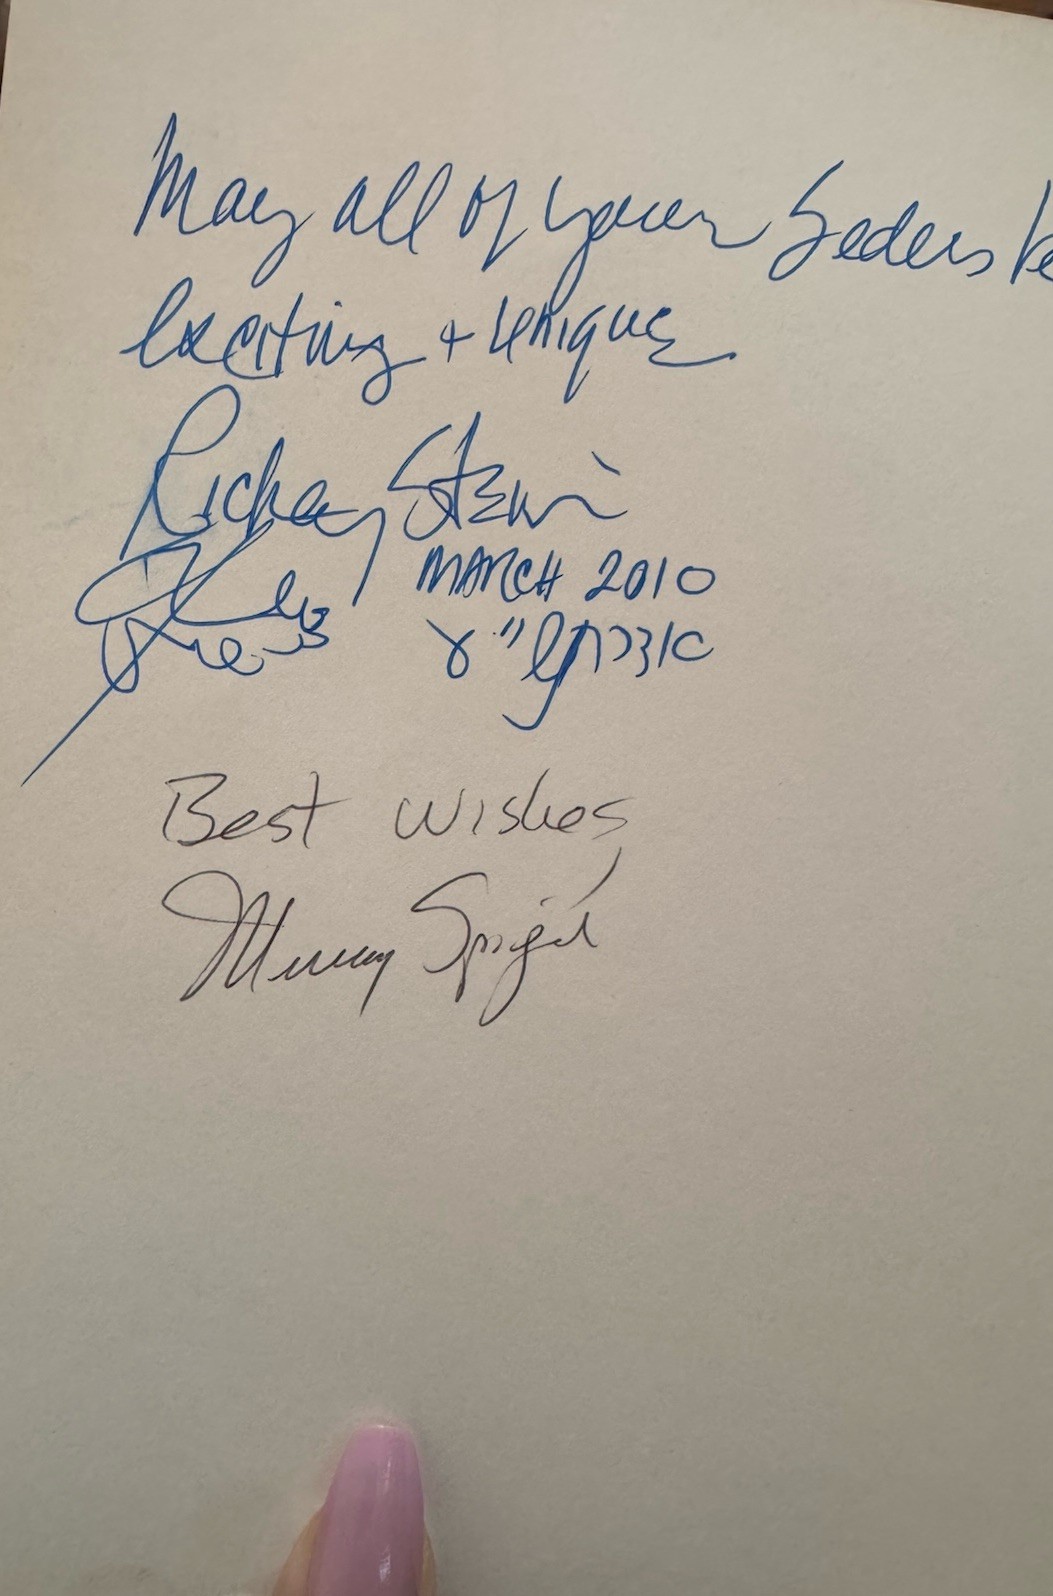 May all of your Seders be
exciting + unique
Rickey Stein
MARCH 2010
Best Wishes,
Murray Spiegel